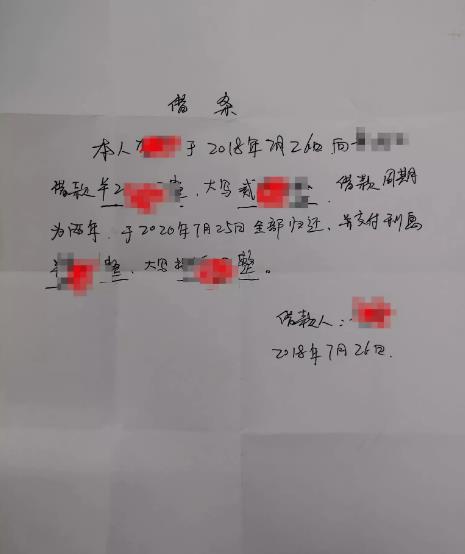 借条
本人 于2018年7月26日向
借款 2 整，大写贰 ，借款周期
为两年，于2020年7月25日全部归还，并交付利息
整，大写 整。
借款人：
2018年7月26日.